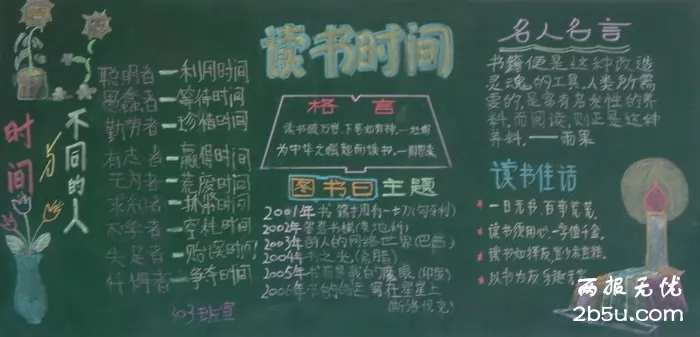 时间
不同的人
聪明者一利用时间
愚蠢者一等待时间
勤劳者一珍惜时间
有志者一赢得时间
无为者一荒废时间
求知者一抓紧时间
不学者一
失足者一贻误时间
忏悔者一争夺时间
读书时间
格言
读书破万卷,下笔如有神。一杜甫
为中华之崛起而读书。一周恩来
图书日主题
2001年书
2002年
2003年的人的网络世界(巴西)
2004年书之光(希腊)
2005年书
2006年书的命运写在星星上
(斯洛伐克)
名人名言
书籍便是这种改造
灵魂的工具。人类所需
要的,是富有启发性的养
料,而阅读,则正是这种
养料。——雨果
读书佳话
一日无书,百事荒芜。
读书须用心,一字值千金。
以书为友
两报无优
2b5u.com